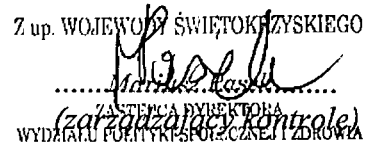 Z up. WOJEWODY ŚWIĘTOKRZYSKIEGO
Mariusz
ZASTĘPCA DYREKTORA
(zarządzający kontrolę)
WYDZIAŁU POLITYKI SPOŁECZNEJ I ZDROWIA